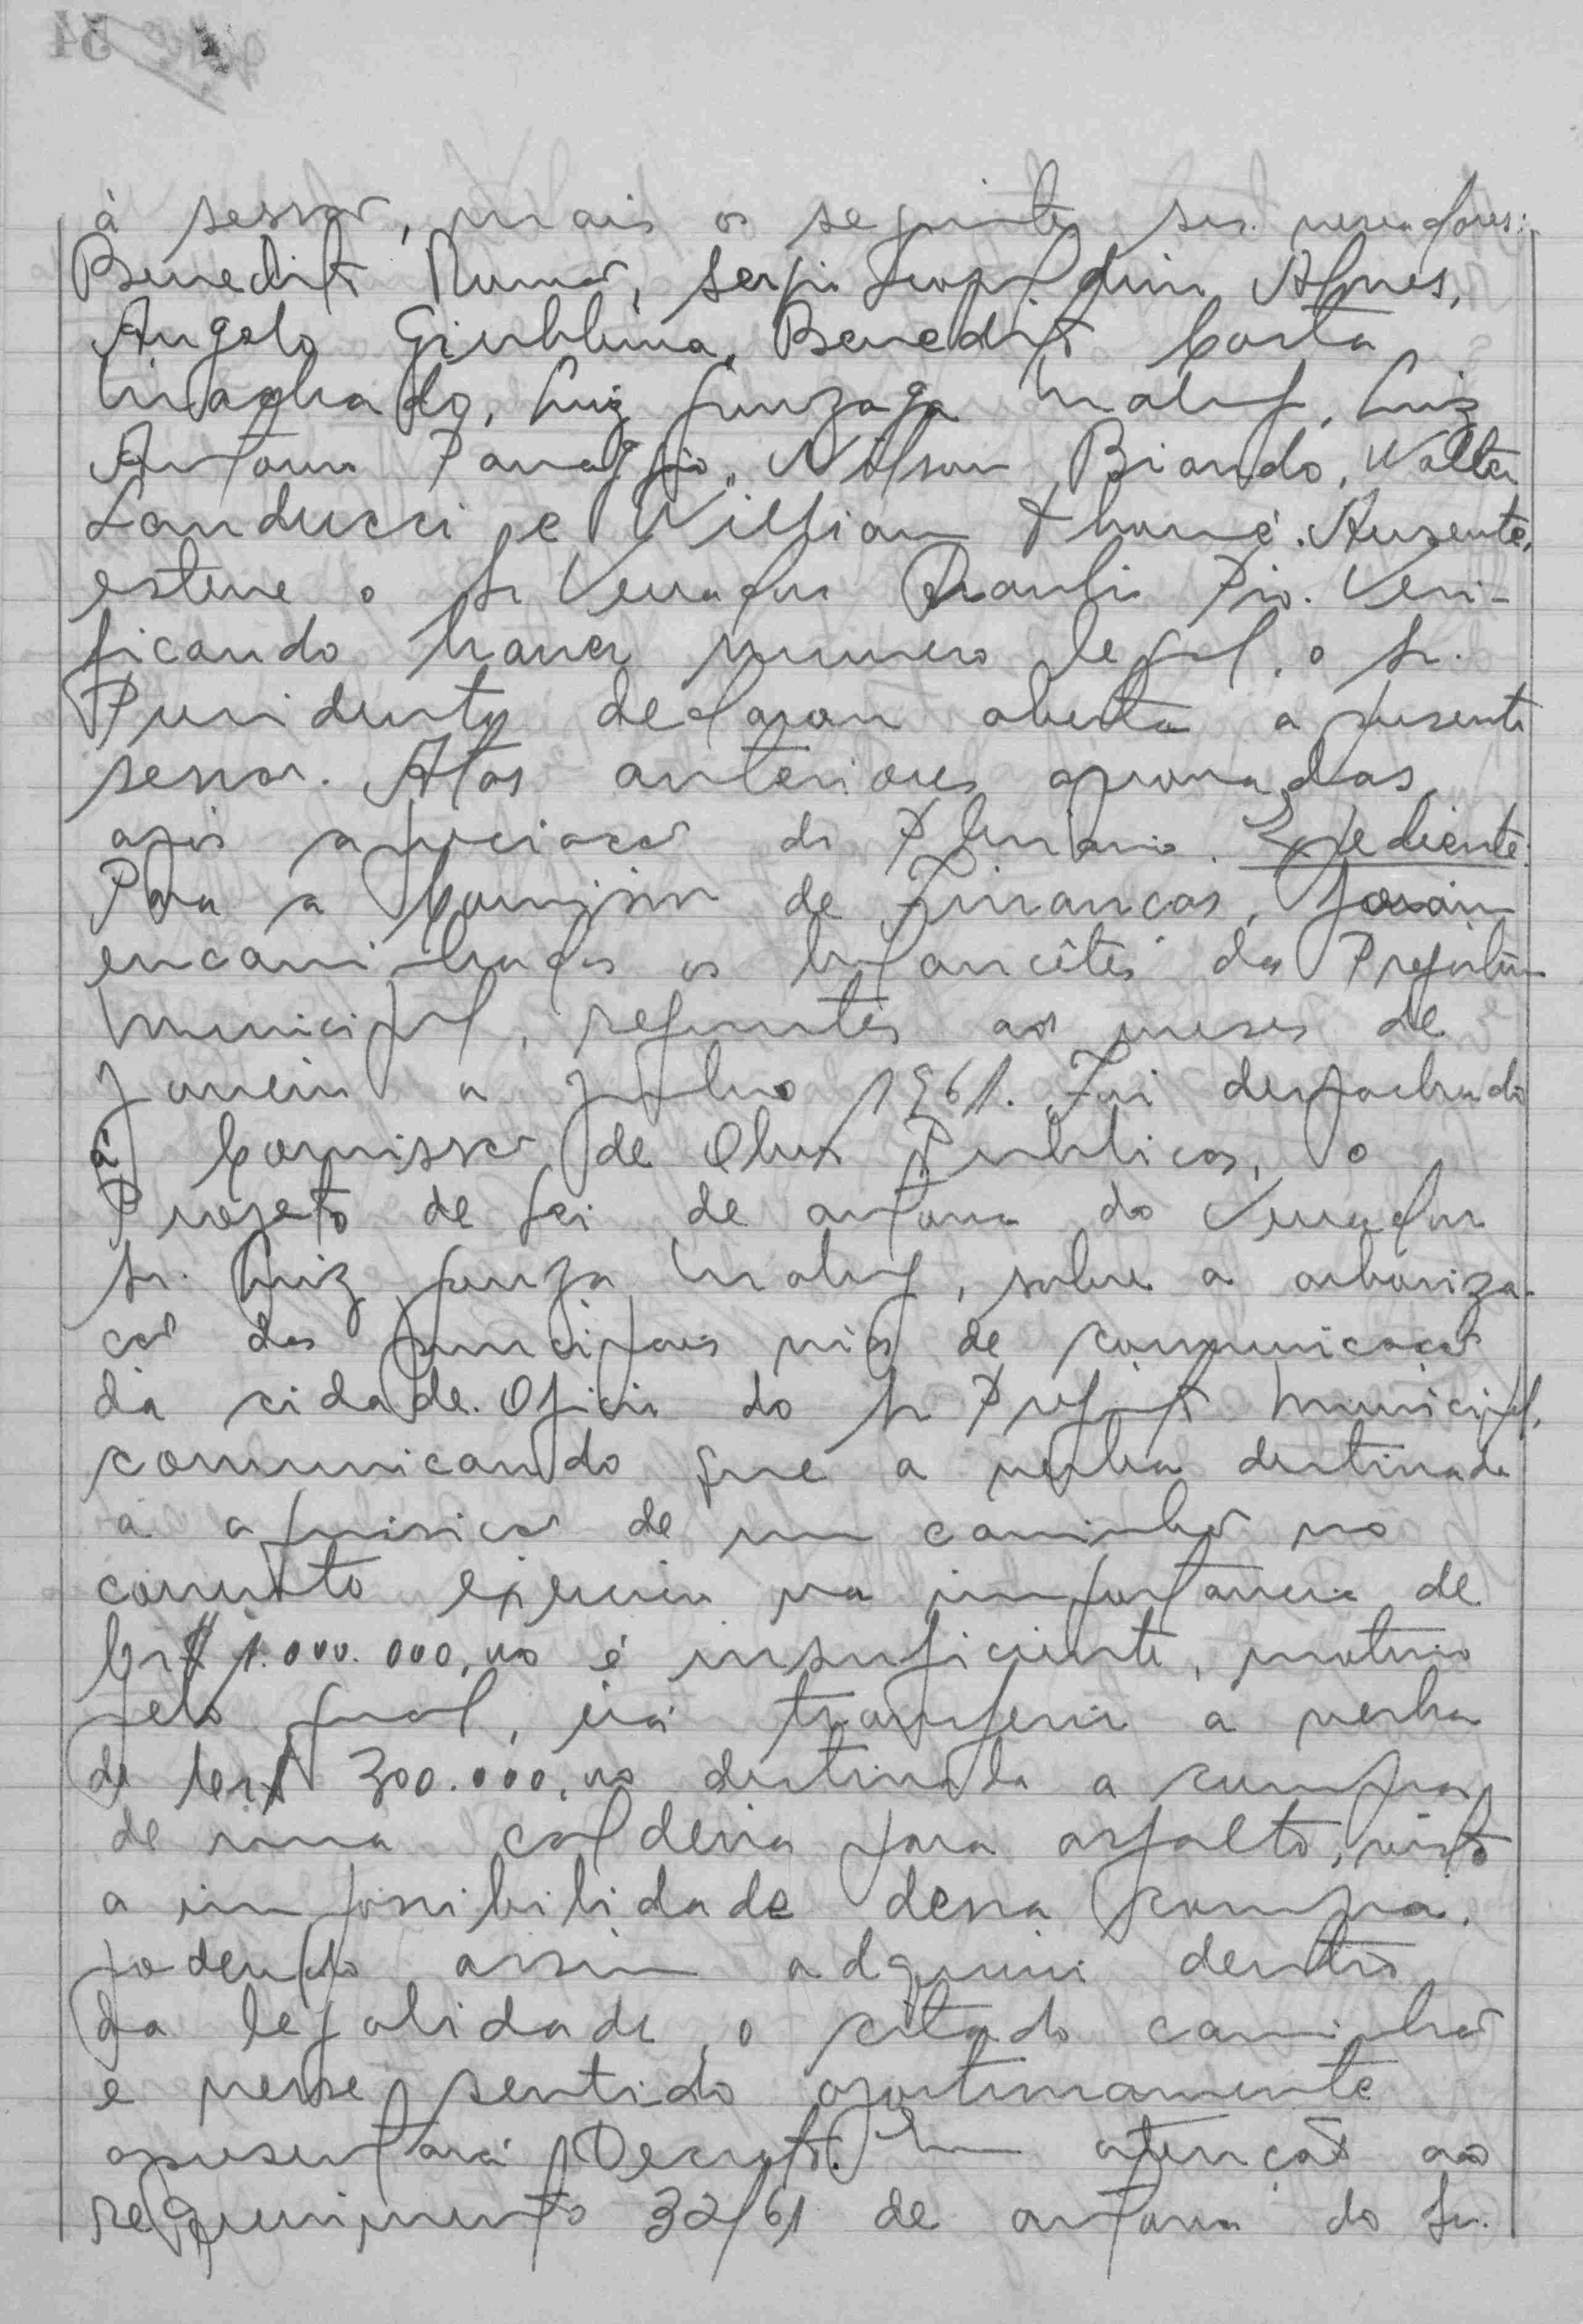 à sessão, mais os seguintes srs. vereadores:
Benedito Romão, Sergio Leopoldino Alves,
Angelo Giubbina, Benedito Costa
Machado, Luiz Gonzaga Maluf, Luiz
Antonio Panaggio, Nilson Biondo, Walter
Landucci e Willian Thomé. Ausente,
esteve o Sr Vereador Braulio Pio. Veri-
ficando haver numero legal, o Sr.
Presidente declarou aberta a presente
sessão. Atas anteriores aprovadas
após apreciação do Plenário. Expediente:
Para a Comissão de Finanças, foram
encaminhados os balancêtes da Prefeitura
Municipal, referentes aos meses de
Janeiro a Julho 1961. Foi despachado
à Comissão de Obras Publicas, o
Projeto de Lei de autoria do Vereador
Sr. Luiz Gonzaga Maluf, sobre a arboriza-
ção das principais vias de comunicação
da cidade. Oficio do Sr Prefeito Municipal,
comunicando que a verba destinada
a aquisição de um caminhão no
corrente exercicio na importancia de
Cr$ 1.000.000,00 é insuficiente, motivo
pelo qual, irá transferir a verba
de Cr$ 300.000,00 destinada a compra
de uma caldeira para asfalto, visto
a impossibilidade dessa compra.
podendo assim adquirir dentro
da legalidade, o citado caminhão
e nesse sentido oportunamente
apresentará Decreto. Em atenção ao
requerimento 32/61 de autoria do Sr.